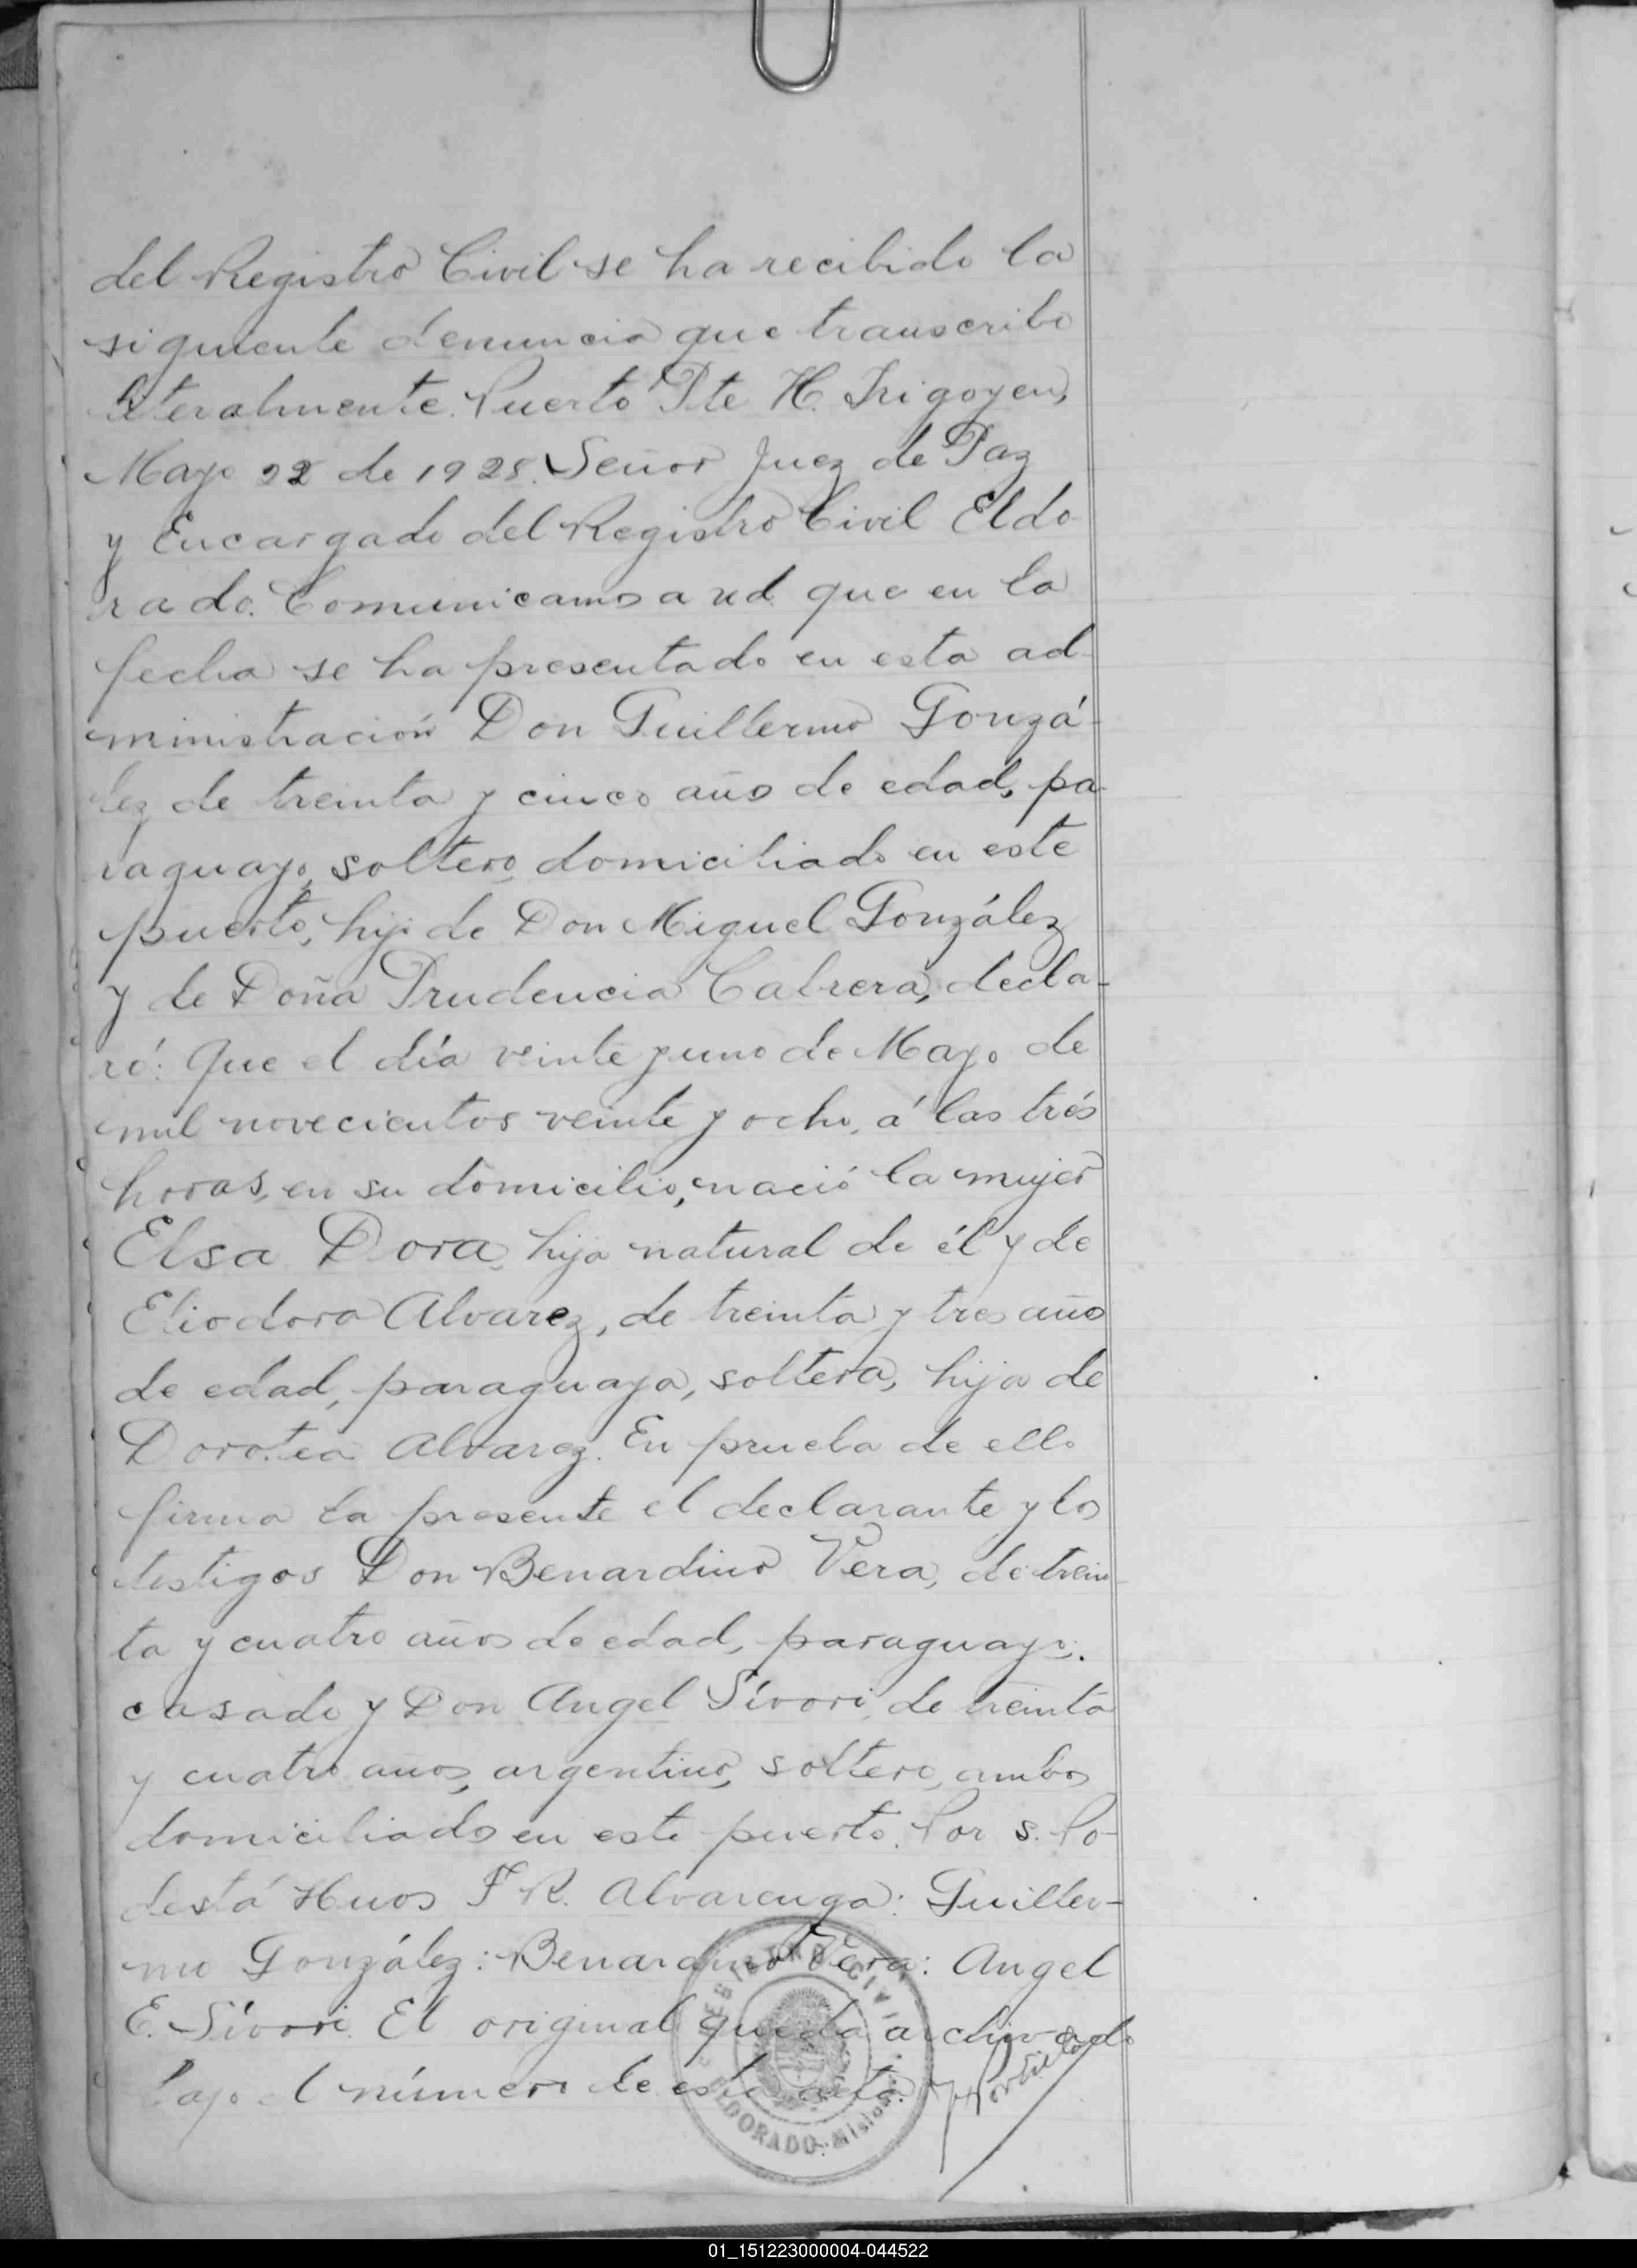 del Registro Civil se ha recibido la
siguiente denuncia que transcribo
literalmente. Puerto Pte H. Irigoyen,
Mayo 22 de 1928. Señor Juez de Paz
y Encargado del Registro Civil Eldo-
rado. Comunicamos a ud. que en la
fecha se ha presentado en esta ad-
ministración Don Guillermo Gonzá-
lez de treinta y cinco años de edad, pa-
raguayo, soltero, domiciliado en este
puerto, hijo de Don Miguel González
y de Doña Prudencia Cabrera, decla-
ró: Que el día veinte y uno de Mayo de
mil novecientos veinte y ocho, á las trés
horas, en su domicilio, nació la mujer
Elsa Dora, hija natural de él y de
Eliodora Alvarez, de treinta y tres años
de edad, paraguaya, soltera, hija de
Dorotea Alvarez. En prueba de ello
firma la presente el declarante y los
testigos Don Benardino Vera, de trein-
ta y cuatro años de edad, paraguayo,
casado y Don Angel Sívori, de treinta
y cuatro años, argentino, soltero, ambos
domiciliados en este puerto. Por S. Po-
destá Hnos F. R. Alvarenga: Guiller-
mo González: Benardino Vera: Angel
E. Sívori. El original queda archivado
bajo el número de esta acta.
REGISTRO CIVIL
ELDORADO. Misiones
01_151223000004-044522